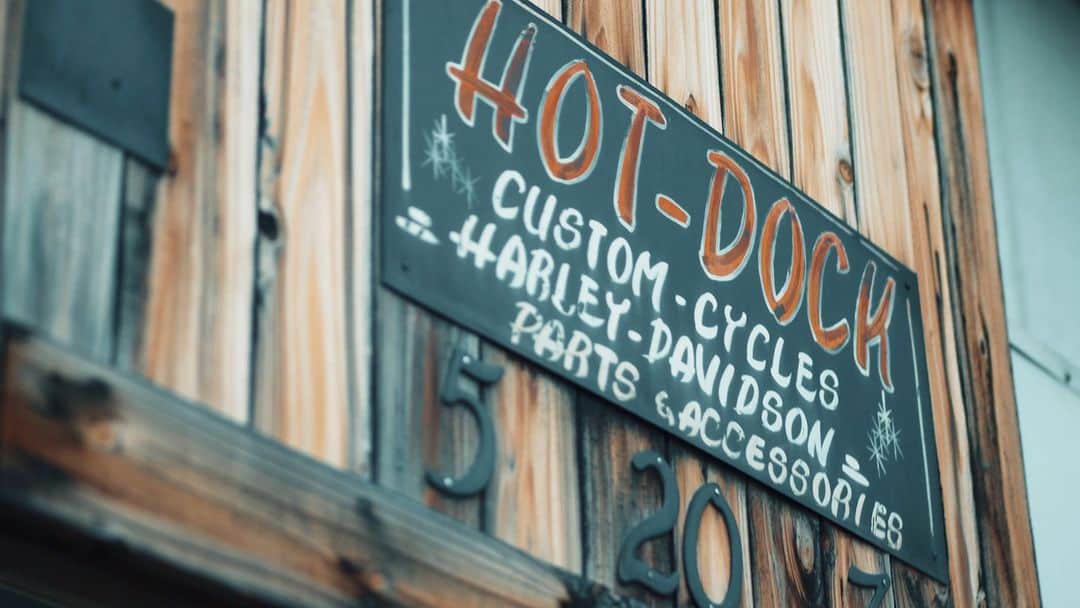 HOT-DOCK
CUSTOM-CYCLES
HARLEY-DAVIDSON
PARTS & ACCESSORIES
5
20